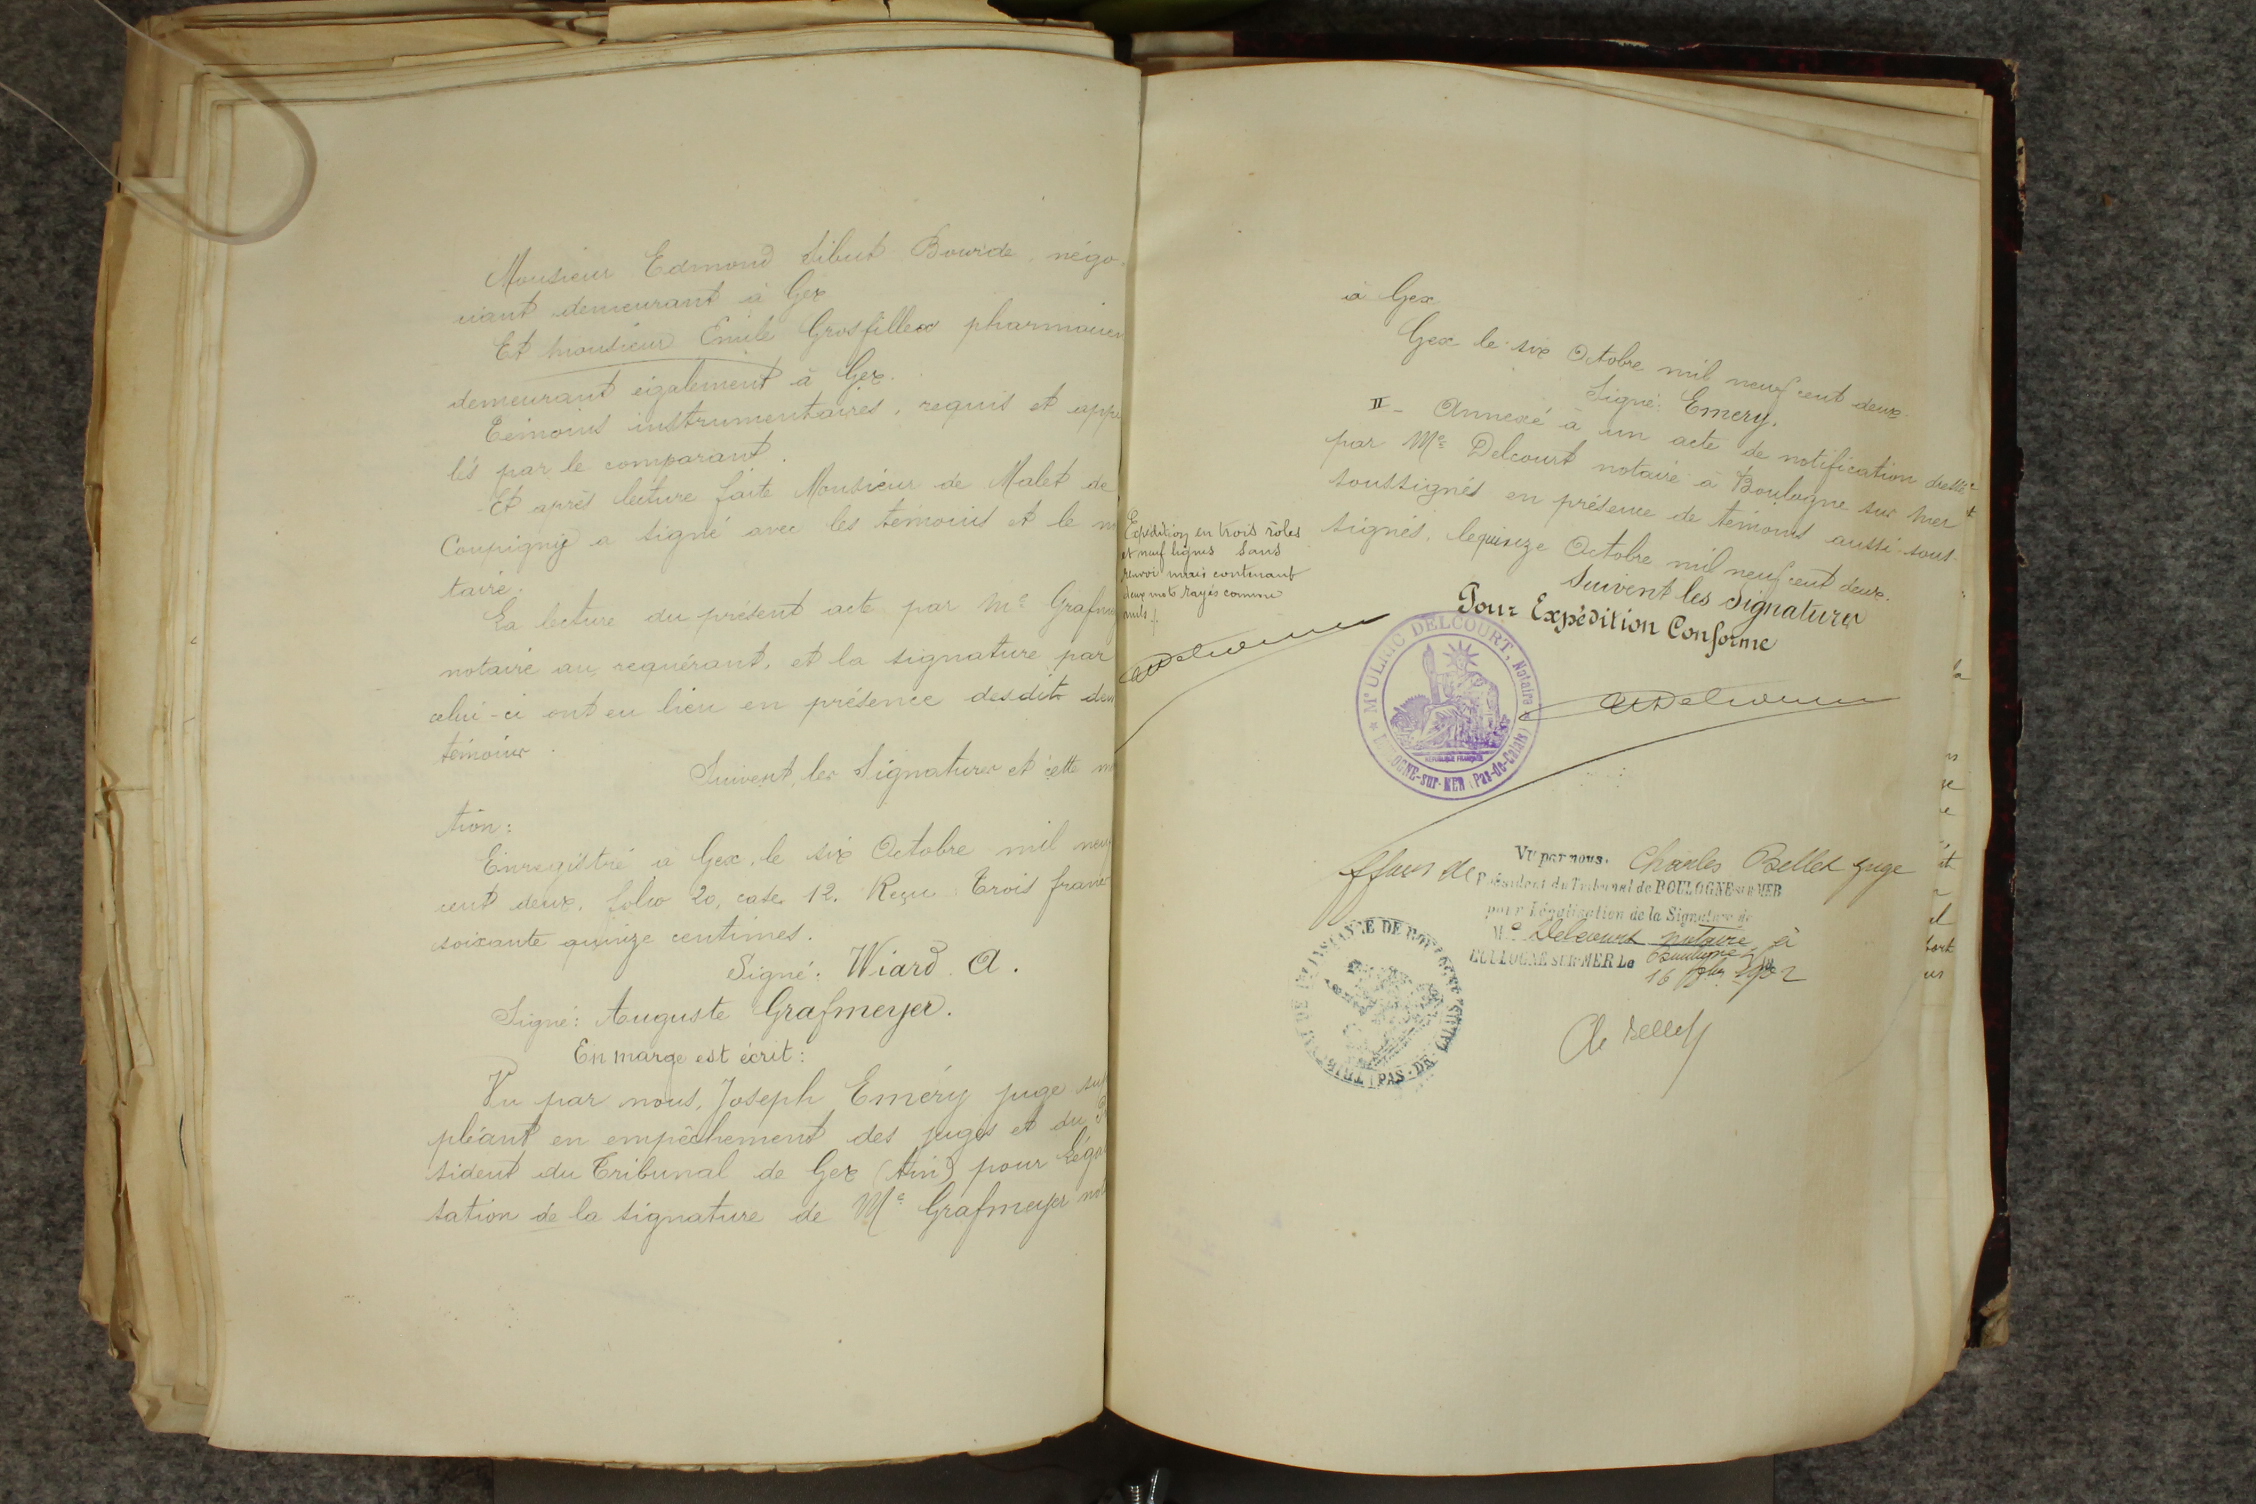 Monsieur Edmond Sibut Bourde, négo
ciant demeurant à Gex
Et Monsieur Emile Grosfillex pharmacien
demeurant également à Gex.
Témoins instrumentaires, requis et appe
lés par le comparant.
Et après lecture faite Monsieur de Malet de
Coupigny a signé avec les témoins et le no
taire.
La lecture du présent acte par Me Grafmey
notaire au requérant, et la signature par
celui-ci ont eu lieu en présence desdits deux
témoins.
Suivent les Signatures et cette m
tion:
Enregistré à Gex, le six Octobre mil neuf
cent deux, folio 20, case 12. Reçu Trois francs
soixante quinze centimes.
Signé: Wiard A.
Signé: Auguste Grafmeyer.
En marge est écrit:
Vu par nous, Joseph Eméry juge sup
pléant en empêchement des juges et du Pr
sident du Tribunal de Gex (Ain) pour légal
sation de la signature de Me Grafmeyer not
à Gex
Gex le six Octobre mil neuf cent deux.
Signé: Emery.
II - Annexé à un acte de notification dressé
par Me Delcourt notaire à Boulogne sur Mer
soussignés en présence de témoins aussi sous-
signés, le quinze Octobre mil neuf cent deux.
Suivent les signatures
Pour Expédition Conforme
Expédition en trois rôles
et neuf lignes sans
renvoi mais contenant
deux mots rayés comme
nuls.
Me ULRIC DELCOURT, Notaire
BOULOGNE-sur-MER (Pas-de-Calais)
REPUBLIQUE FRANÇAISE
Vu par nous, Charles Bellet juge
ffons de Président du Tribunal de BOULOGNE-sur-MER
pour Légalisation de la Signature de
Me Delcourt notaire à
Boulogne
BOULOGNE-SUR-MER Le
16 1902
TRIBUNAL DE 1re INSTANCE DE BOULOGNE-SUR-MER
(PAS-DE-CALAIS)
Ch Bellet